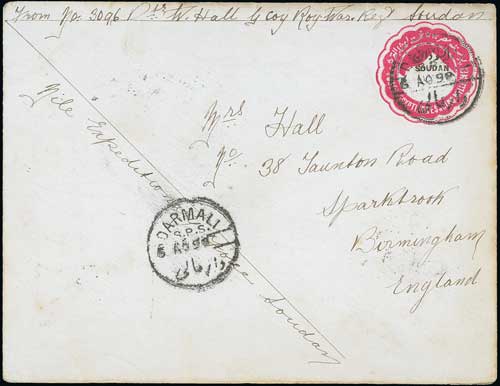 From No. 3096 Pte W. Hall G Coy Roy War. Regt Soudan
Nile Expedition The Soudan
SOUDAN
Mrs Hall
No. 38 Taunton Road
Sparkbrook
Birmingham
England
DARMALI
S.P.S
5 AU 98